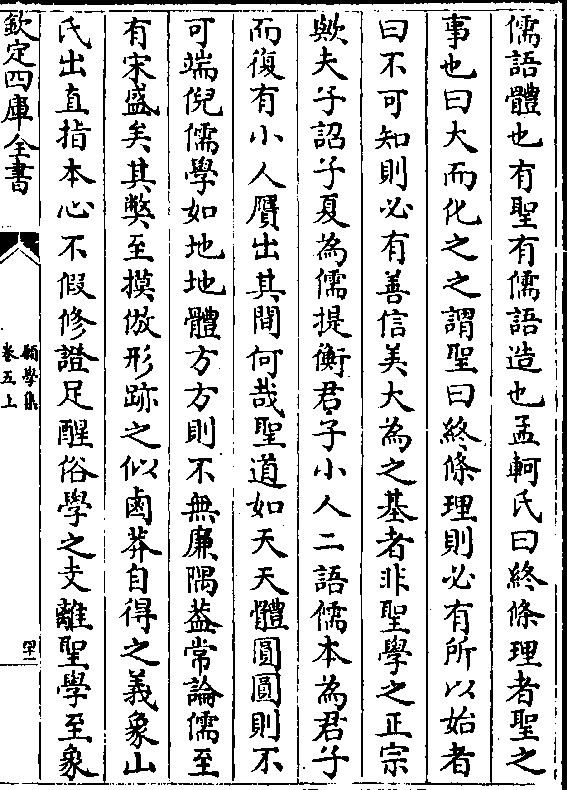 儒語體也有聖有儒語造也孟軻氏曰終條理者聖之
事也曰大而化之之謂聖曰終條理則必有所以始者
曰不可知則必有善信美大為之基者非聖學之正宗
歟夫子詔子夏為儒提衡君子小人二語儒本為君子
而復有小人贗出其間何哉聖道如天天體圓圓則不
可端倪儒學如地地體方方則不無廉隅葢常論儒至
有宋盛矣其獘至摸倣形跡之似鹵莽自得之義象山
氏出直指本心不假修證足醒俗學之支離聖學至象
欽定四庫全書
願學集
卷五上